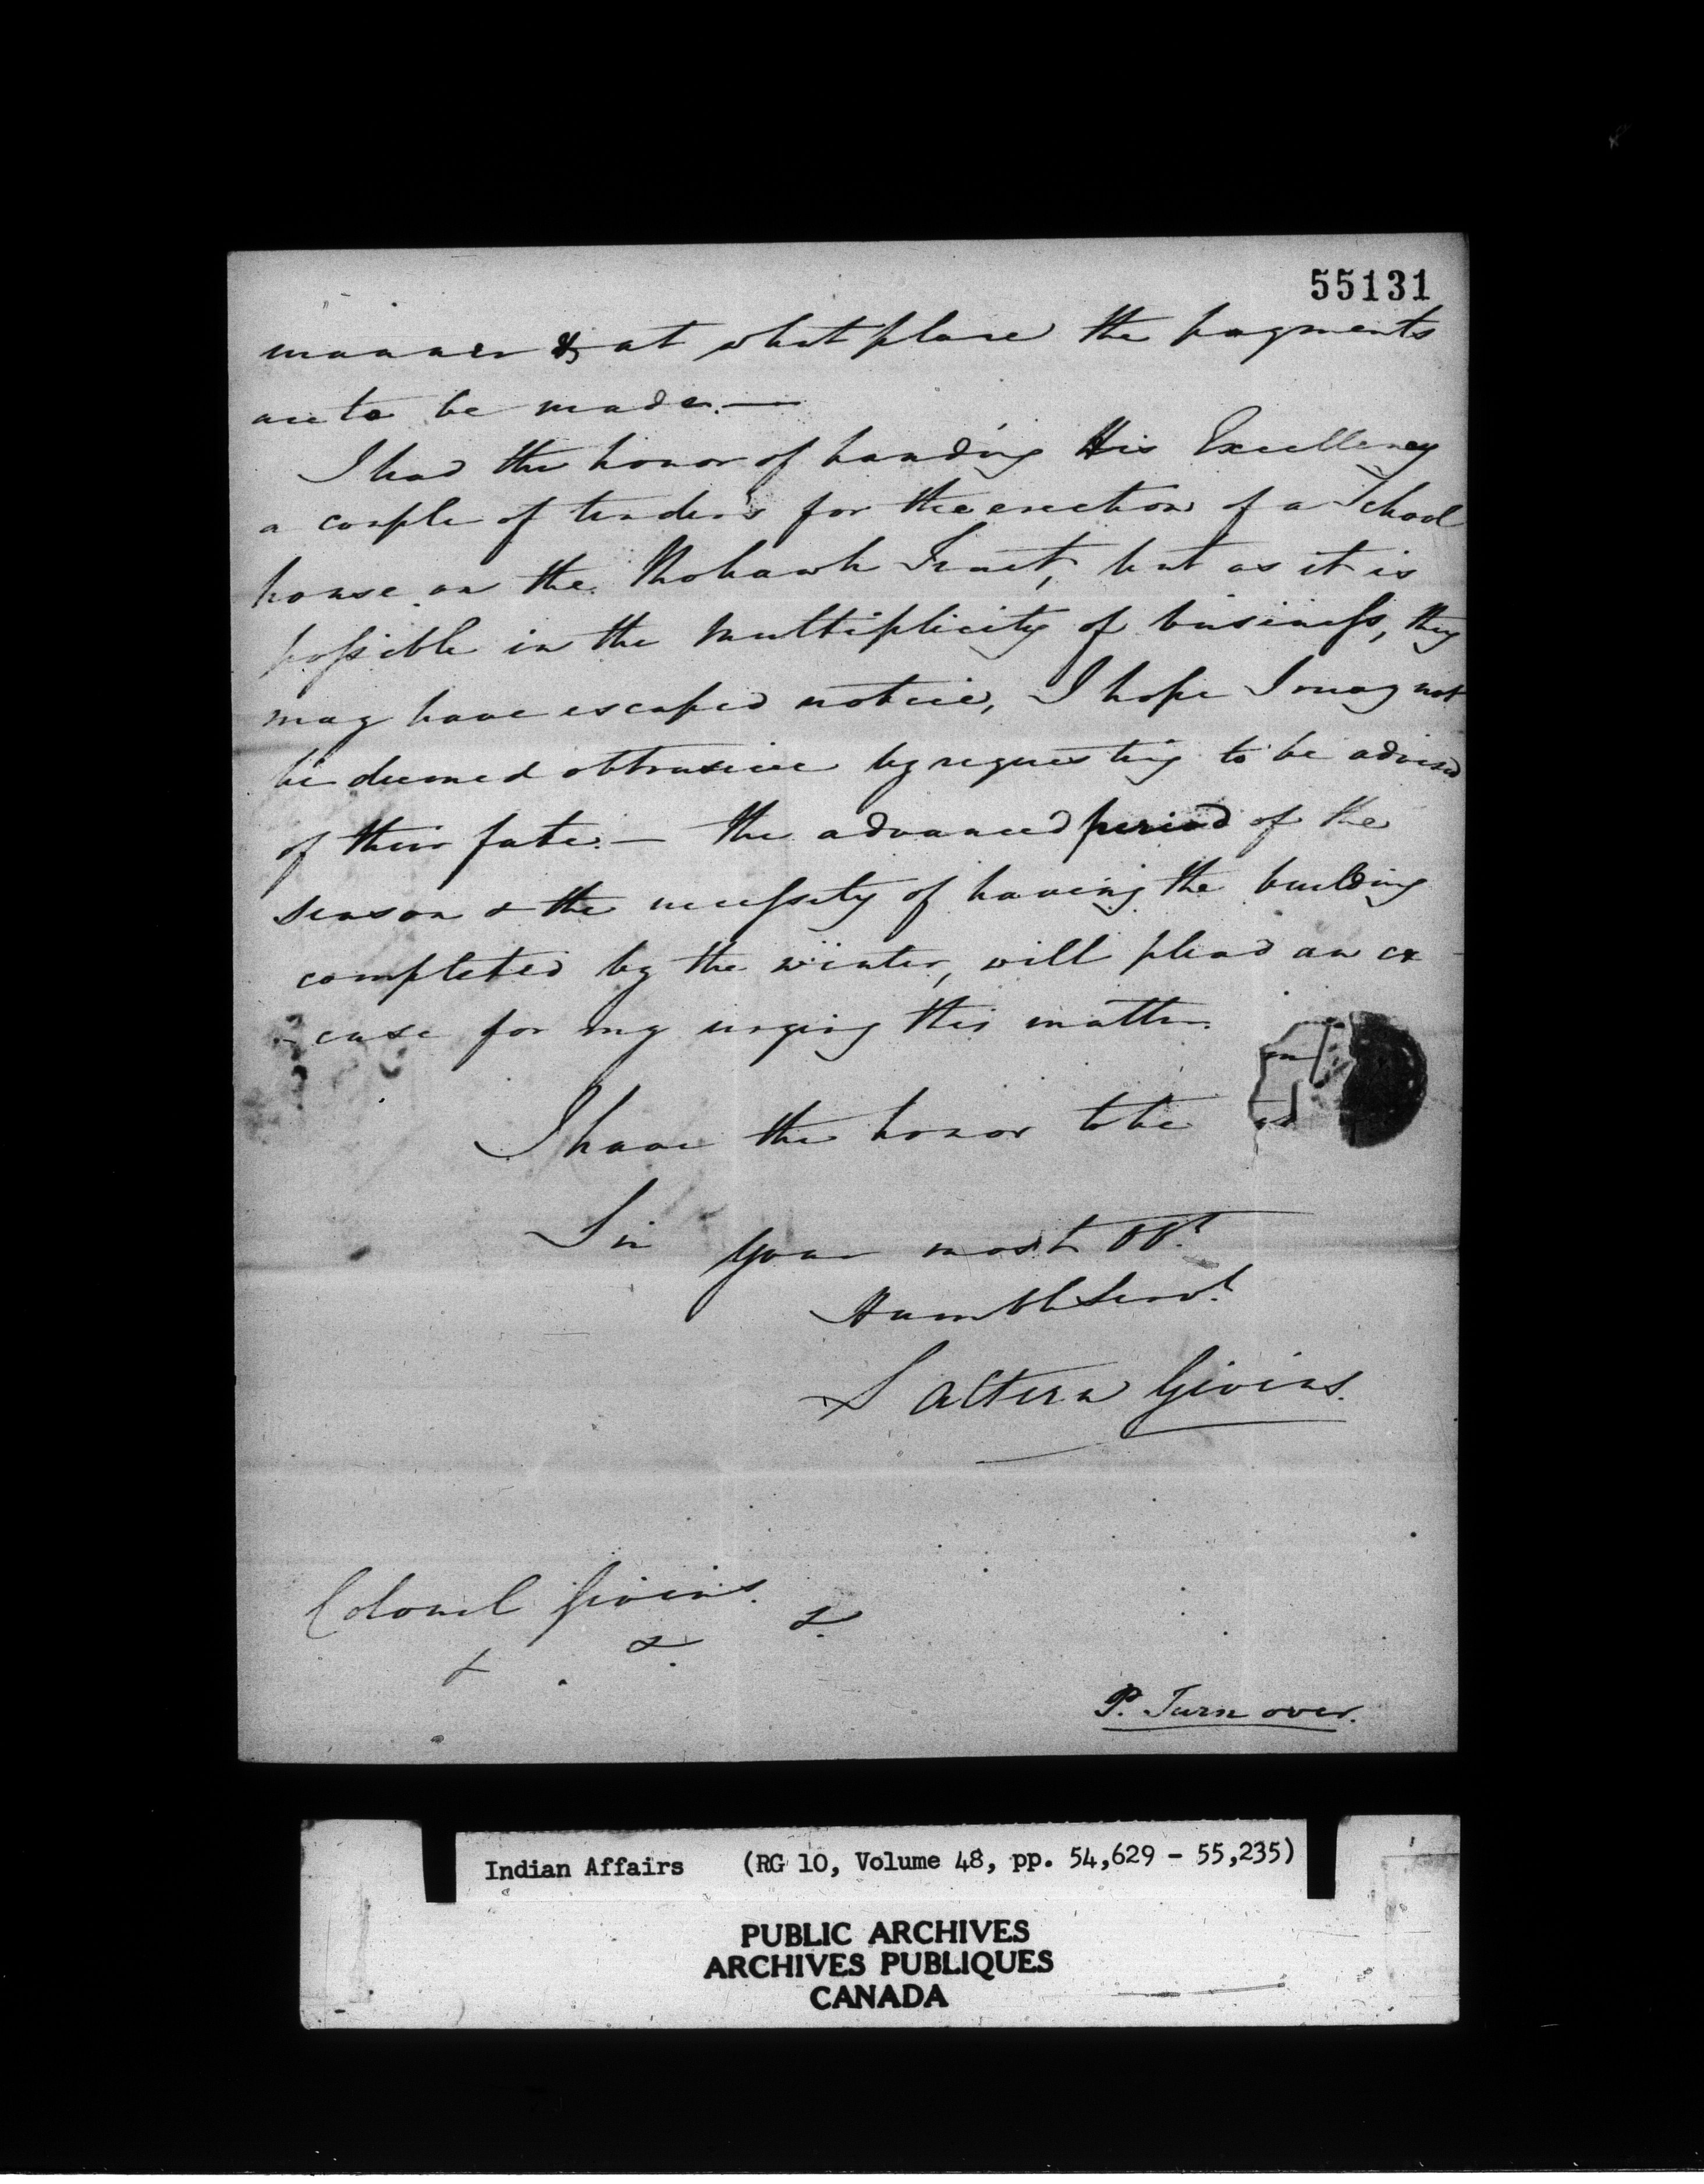 55131
manner & at what place the payments
are to be made.—
I had the honor of handing His Excellency
a couple of tenders for the erection of a School
house on the Mohawk Tract, but as it is
possible in the multiplicity of business, they
may have escaped notice, I hope I may not
be deemed obtrusive by requesting to be advised
of their fate.— the advanced period of the
season & the necessity of having the building
completed by the winter, will plead an ex
-cuse for my urging this matter.
I have the honor to be
Sir your most Obt.
Humble Servt.
Saltern Givins.
Colonel Givins.
& & &.
P. Turn over.
Indian Affairs (RG 10, Volume 48, pp. 54,629 - 55,235)
PUBLIC ARCHIVES
ARCHIVES PUBLIQUES
CANADA